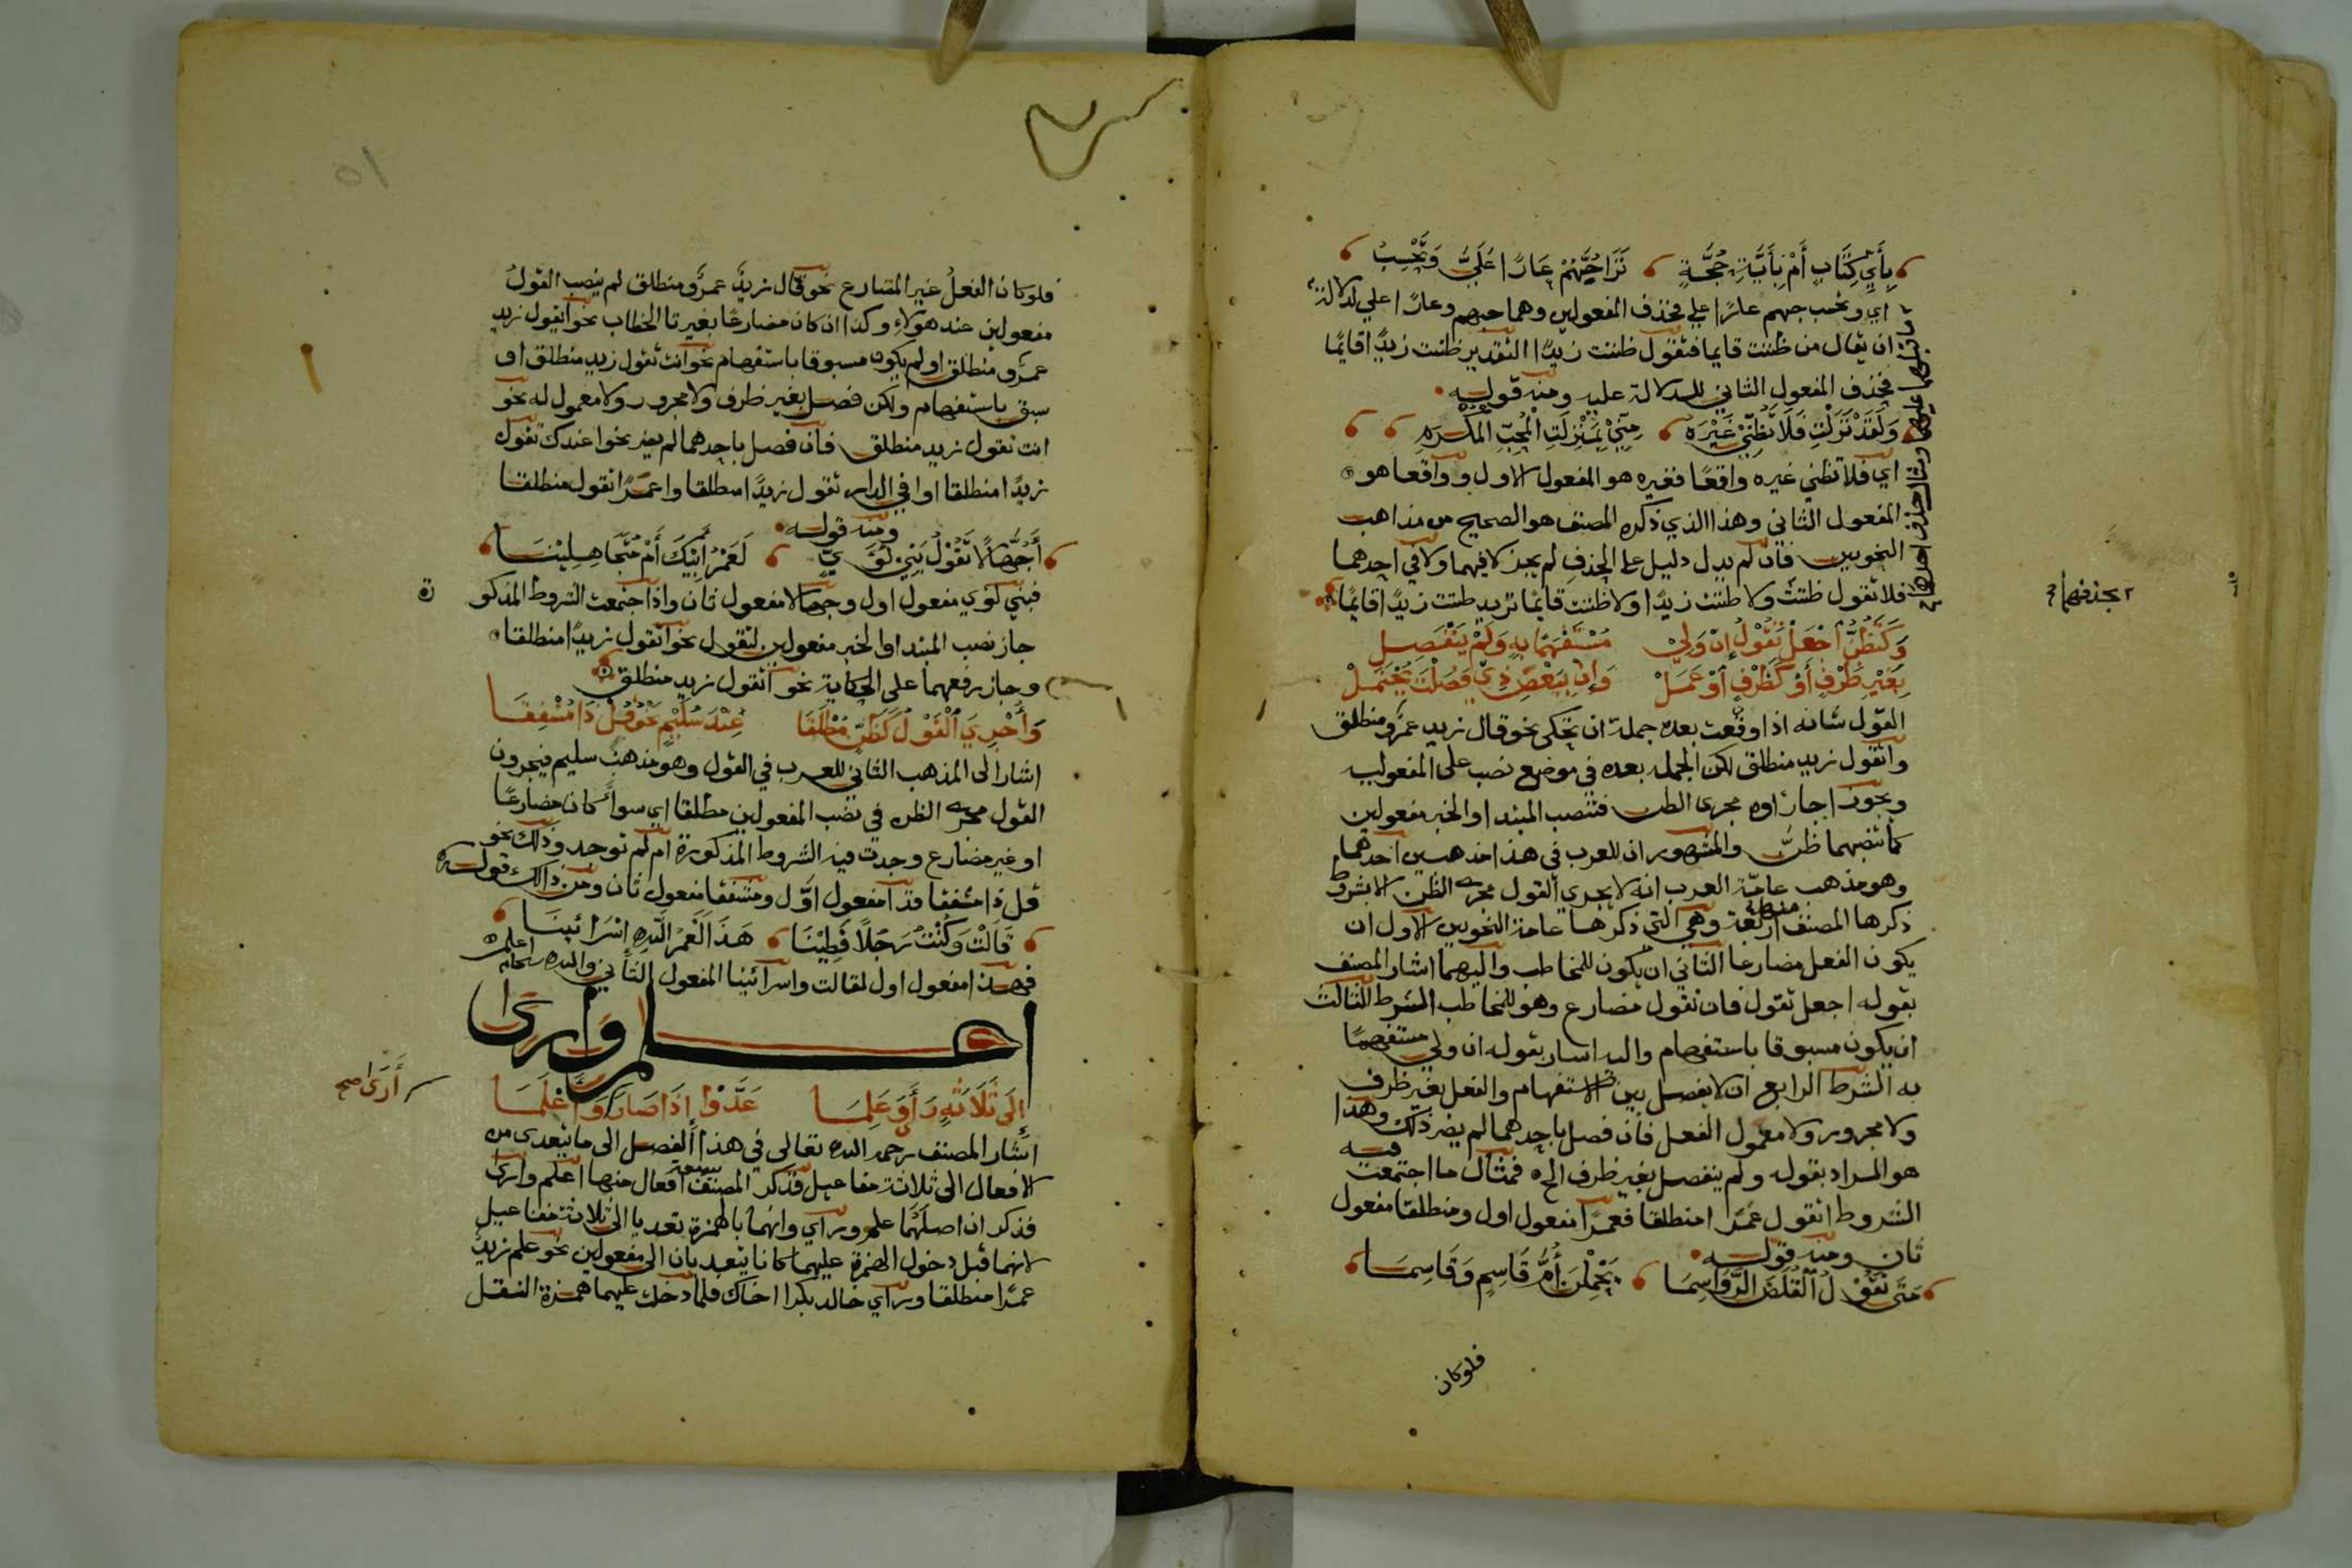 بِأَيِّ كِتَابٍ أَمْ بِأَيَّةِ حُجَّةٍ تَرَاحُبَّهُمْ عَارًا عَلَيَّ وَتَحْسِبُ
اي وتحسب حبهم عارا علي فحذف المفعولين وهما حبهم وعارا علي لدلالة
ما قبلهما عليهما ومثال حذف احدهما
ان يقال من ظننت قايما فتقول ظننت زيدا التقدير ظننت زيدا قايما
فحذف المفعول الثاني للدلالة عليه ومنه قوله
وَلَقَدْ نَزَلْتِ فَلَا تَظُنِّيْ غَيْرَهُ مِنِّيْ بِمَنْزِلَتِ الْمُحِبِّ الْمُكْرَمِ
اي فلا تظني غيره واقعا فغيره هو المفعول الاول وواقعا هو
المفعول الثاني وهذا الذي ذكره المصنف هو الصحيح من مذاهب
النحويين فان لم يدل دليل على الحذف لم يجز لا فيهما ولا في احدهما
بحذفهما
فلا تقول ظننت ولا ظننت زيدا ولا ظننت قايما تريد ظننت زيدا قايما
وَكَتَظُنُّ اجْعَلْ تَقُوْلُ إِنْ وَلِيْ مُسْتَفْهَمًا بِهِ وَلَمْ يَنْفَصِلِ
بِغَيْرِ ظَرْفٍ أَوْ كَظَرْفٍ أَوْ عَمَلْ وَإِنْ بِبَعْضِ ذِيْ فَصَلْتَ يُحْتَمَلْ
القول شانه اذا وقعت بعده جملة ان تحكى نحو قال زيد عمرو منطلق
واتقول زيد منطلق لكن الجملة بعده في موضع نصب على المفعولية
ويجوز اجراؤه مجرى الظن فتنصب المبتدا والخبر مفعولين
كما تنصبهما ظن والمشهور ان للعرب في هذا مذهبين احدهما
وهو مذهب عامة العرب انه لا يجري القول مجرى الظن الا بشروط
ذكرها المصنف اربعة وهي التي ذكرها عامة النحويين الاول ان
يكون الفعل مضارعا الثاني ان يكون للمخاطب واليهما اشار المصنف
بقوله اجعل تقول فان تقول مضارع وهو للمخاطب الشرط الثالث
ان يكون مسبوقا باستفهام واليه اشار بقوله ان ولي مستفهما
به الشرط الرابع ان لا يفصل بين الاستفهام والفعل بغير ظرف
ولا مجرور ولا معمول الفعل فان فصل باحدهما لم يضر ذلك وهذا
هو المراد بقوله ولم ينفصل بغير ظرف الخ فمثال ما اجتمعت فيه
الشروط اتقول عمرا منطلقا فعمرا مفعول اول ومنطلقا مفعول
ثان ومنه قوله
مَتَى تَقُوْلُ الْقُلُصَ الرَّوَاسِمَا يَحْمِلْنَ أُمَّ قَاسِمٍ وَقَاسِمَا
فلوكان
٥١
فلوكان الفعل غير المضارع نحو قال زيد عمرو منطلق لم ينصب القول
مفعولين عند هولاء وكذا ان كان مضارعا بغير تا الخطاب نحو ايقول زيد
عمرو منطلق او لم يكون مسبوقا باستفهام نحو انت تقول زيد منطلق او
سبق باستفهام ولكن فصل بغير ظرف ولا مجرور ولا معمول له نحو
انت تقول زيد منطلق فان فصل باحدهما لم يضر نحو اعندك تقول
زيدا منطلقا او افي الدار تقول زيدا منطلقا واعمرا تقول منطلقا
ومنه قوله
أَجُهَّالًا تَقُوْلُ بَنِيْ لُؤَيٍّ لَعَمْرُ أَبِيْكَ أَمْ مُتَجَاهِلِيْنَا
فبني لوي مفعول اول وجهالا مفعول ثان واذا اجتمعت الشروط المذكورة
جاز نصب المبتدا والخبر مفعولين لتقول نحو اتقول زيدا منطلقا
وجاز رفعهما على الحكاية نحو اتقول زيد منطلق
وَأُجْرِيَ الْقَوْلُ كَظَنٍّ مُطْلَقَا عِنْدَ سُلَيْمٍ نَحْوُ قُلْ ذَا مُشْفِقَا
اشار الى المذهب الثاني للعرب في القول وهو مذهب سليم فيجرون
القول مجرى الظن في نصب المفعولين مطلقا اي سواء كان مضارعا
او غير مضارع وجدت فيه الشروط المذكورة ام لم توجد وذلك نحو
قل ذا مشفقا فذا مفعول اول ومشفقا مفعول ثان ومن ذالك قوله
قَالَتْ وَكُنْتُ رَجُلًا فَطِيْنَا هَذَا لَعَمْرُ اللَّهِ إِسْرَائِيْنَا
فهذا مفعول اول لقالت واسرائينا المفعول الثاني والله سبحانه اعلم
اعلم وارى
إِلَى ثَلَاثَةٍ رَأَى وَعَلِمَا عَدَّوْا إِذَا صَارَ وَأَعْلَمَا
أَرَى صح
اشار المصنف رحمه الله تعالى في هذا الفصل الى ما يتعدى من
الافعال الى ثلاثة مفاعيل فذكر المصنف سبعة افعال منها اعلم وارى
فذكر ان اصلهما علم وراي وانهما بالهمزة تعديا الى ثلاثة مفاعيل
لانهما قبل دخول الهمزة عليهما كانا يتعديان الى مفعولين نحو علم زيد
عمرا منطلقا وراي خالد بكرا اخاك فلما دخلت عليهما همزة النقل